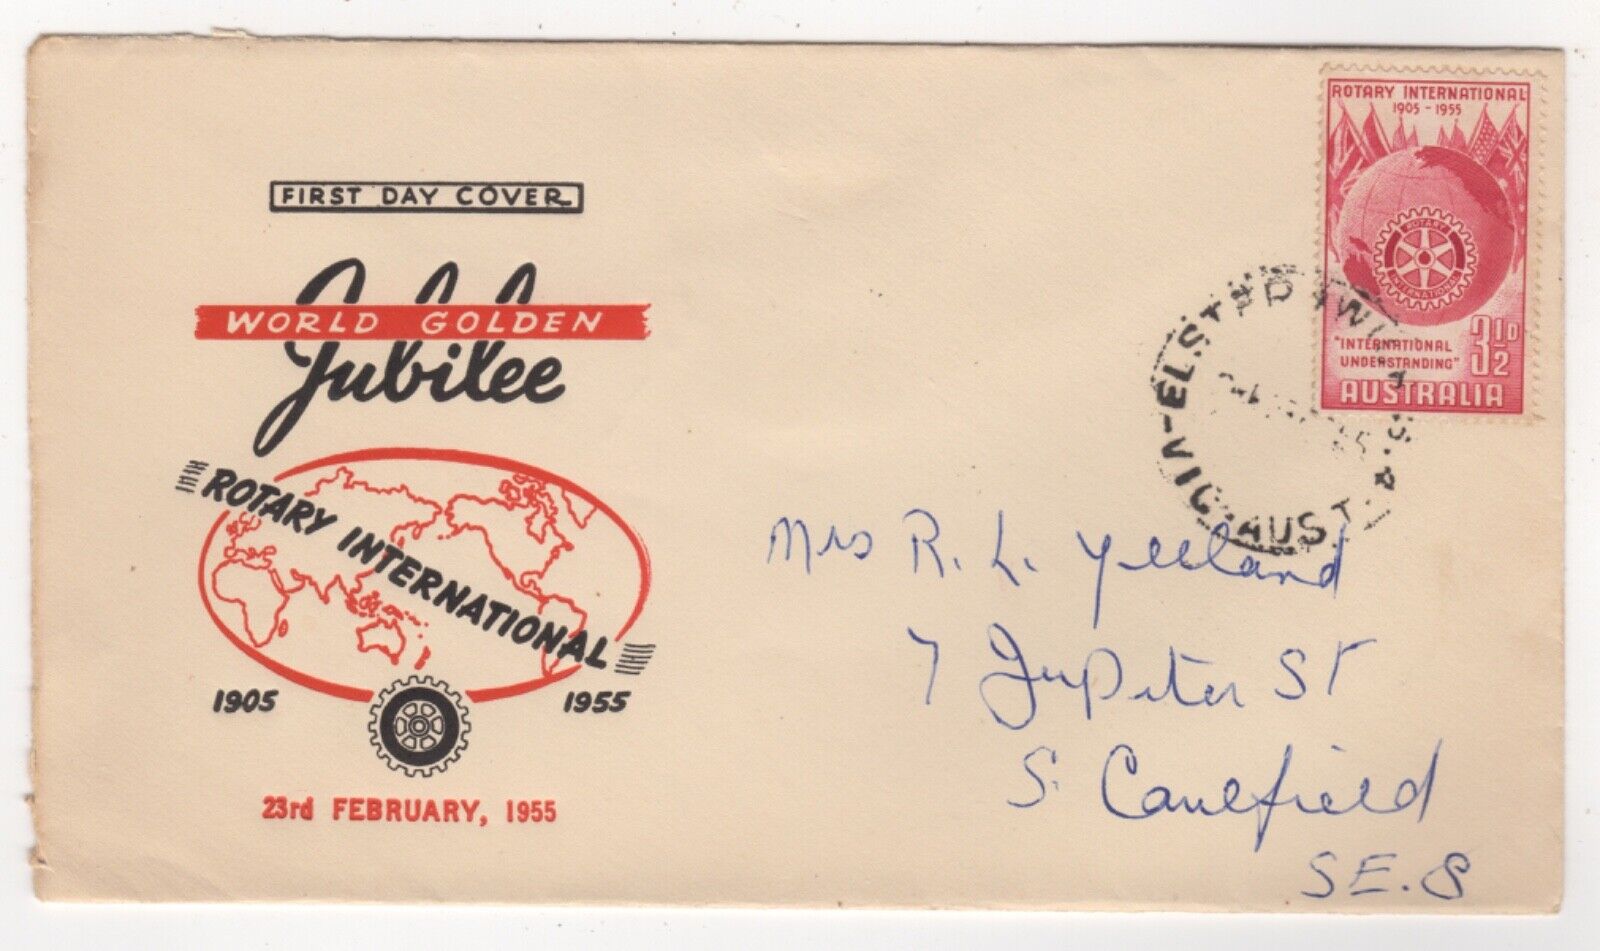 FIRST DAY COVER
WORLD GOLDEN
Jubilee
ROTARY INTERNATIONAL
1905 1955
23rd FEBRUARY, 1955
ROTARY INTERNATIONAL
1905 - 1955
ROTARY
INTERNATIONAL
"INTERNATIONAL
UNDERSTANDING"
3½D
AUSTRALIA
VIC-AUST.
Mrs R. L. Yelland
7 Jupiter St
S. Caulfield
SE. 8